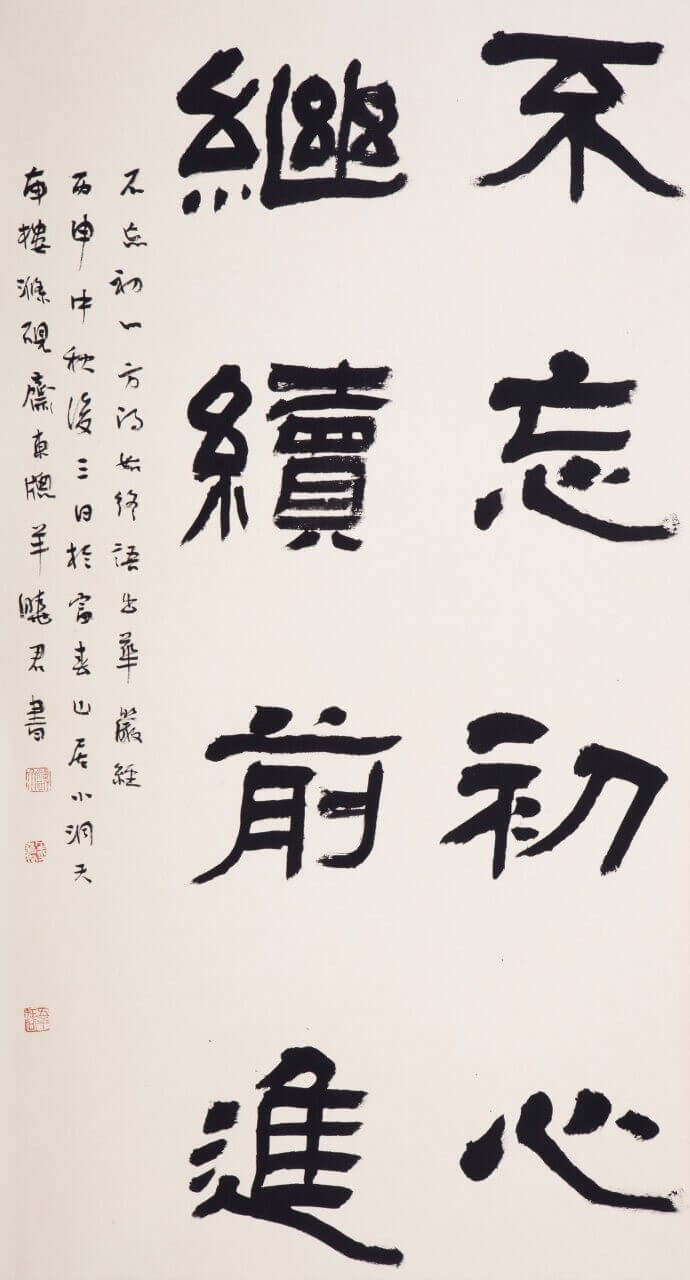 不忘初心
繼續前進
不忘初心方得始終語出華嚴經
丙申中秋後三日於富春山居小洞天
南樓滌硯齋東牕羊曉君書